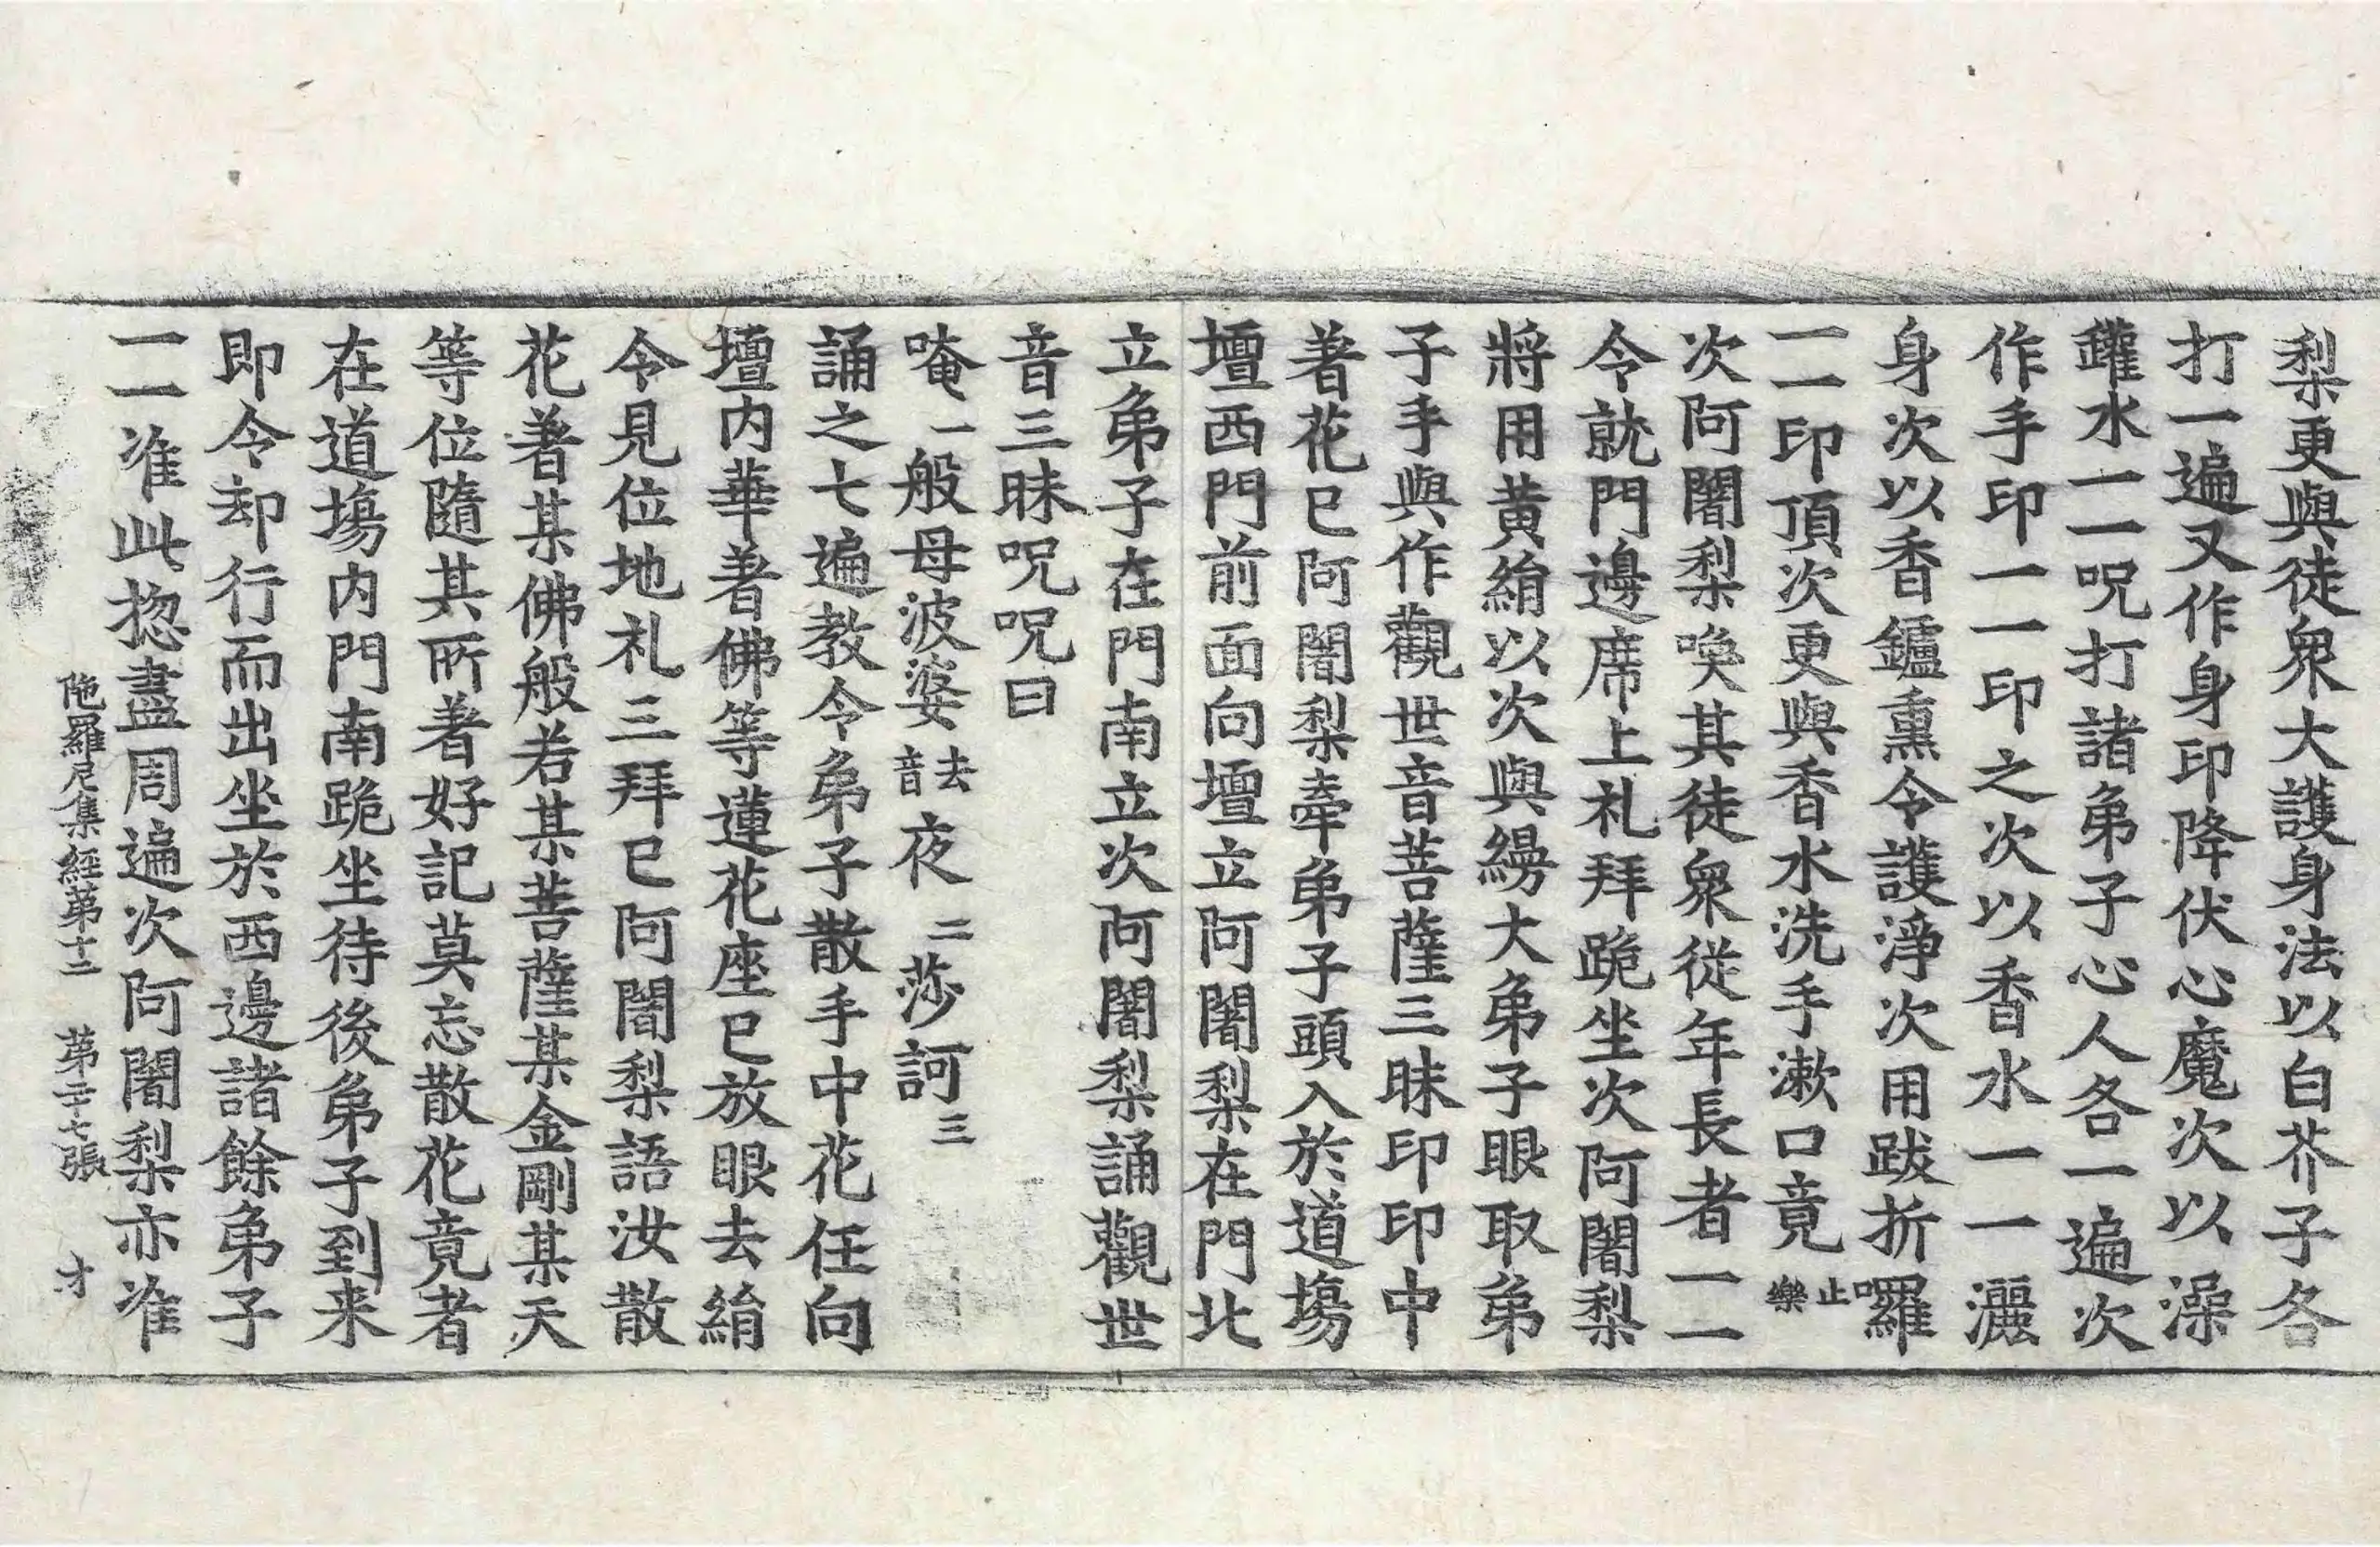 梨更與徒衆大護身法以白芥子各
打一遍又作身印降伏心魔次以澡
鑵水一一呪打諸弟子心人各一遍次
作手印一一印之次以香水一一灑
身次以香鑪熏令護淨次用跋折囉
一一印頂次更與香水洗手漱口竟止樂
次阿闍梨喚其徒衆從年長者一一
令就門邊席上礼拜跪坐次阿闍梨
將用黄絹以次與縵大弟子眼取弟
子手與作觀世音菩薩三昧印印中
著花已阿闍梨牽弟子頭入於道塲
壇西門前面向壇立阿闍梨在門北
立弟子在門南立次阿闍梨誦觀世
音三昧呪呪曰
唵一般母波婆去音夜二莎訶三
誦之七遍教令弟子散手中花任向
壇内華著佛等蓮花座已放眼去絹
令見位地礼三拜已阿闍梨語汝散
花著某佛般若某菩薩某金剛某天
等位隨其所著好記莫忘散花竟者
在道塲内門南跪坐待後弟子到来
即令却行而出坐於西邊諸餘弟子
一一准此揔盡周遍次阿闍梨亦准
陁羅尼集經第十二 第二十七張 才